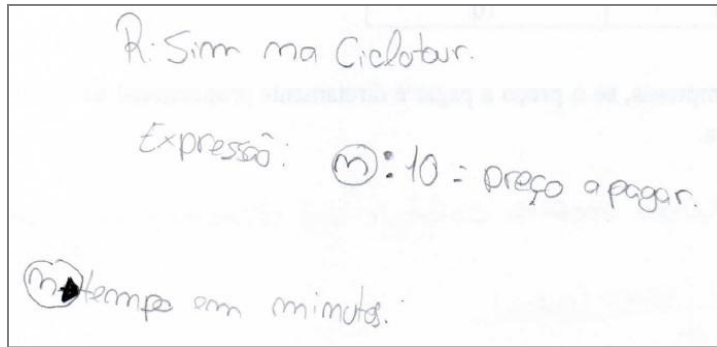 R: Sim na Ciclotour.
Expressão: (n) : 10 = preço a pagar.
(n)→tempo em minutos.